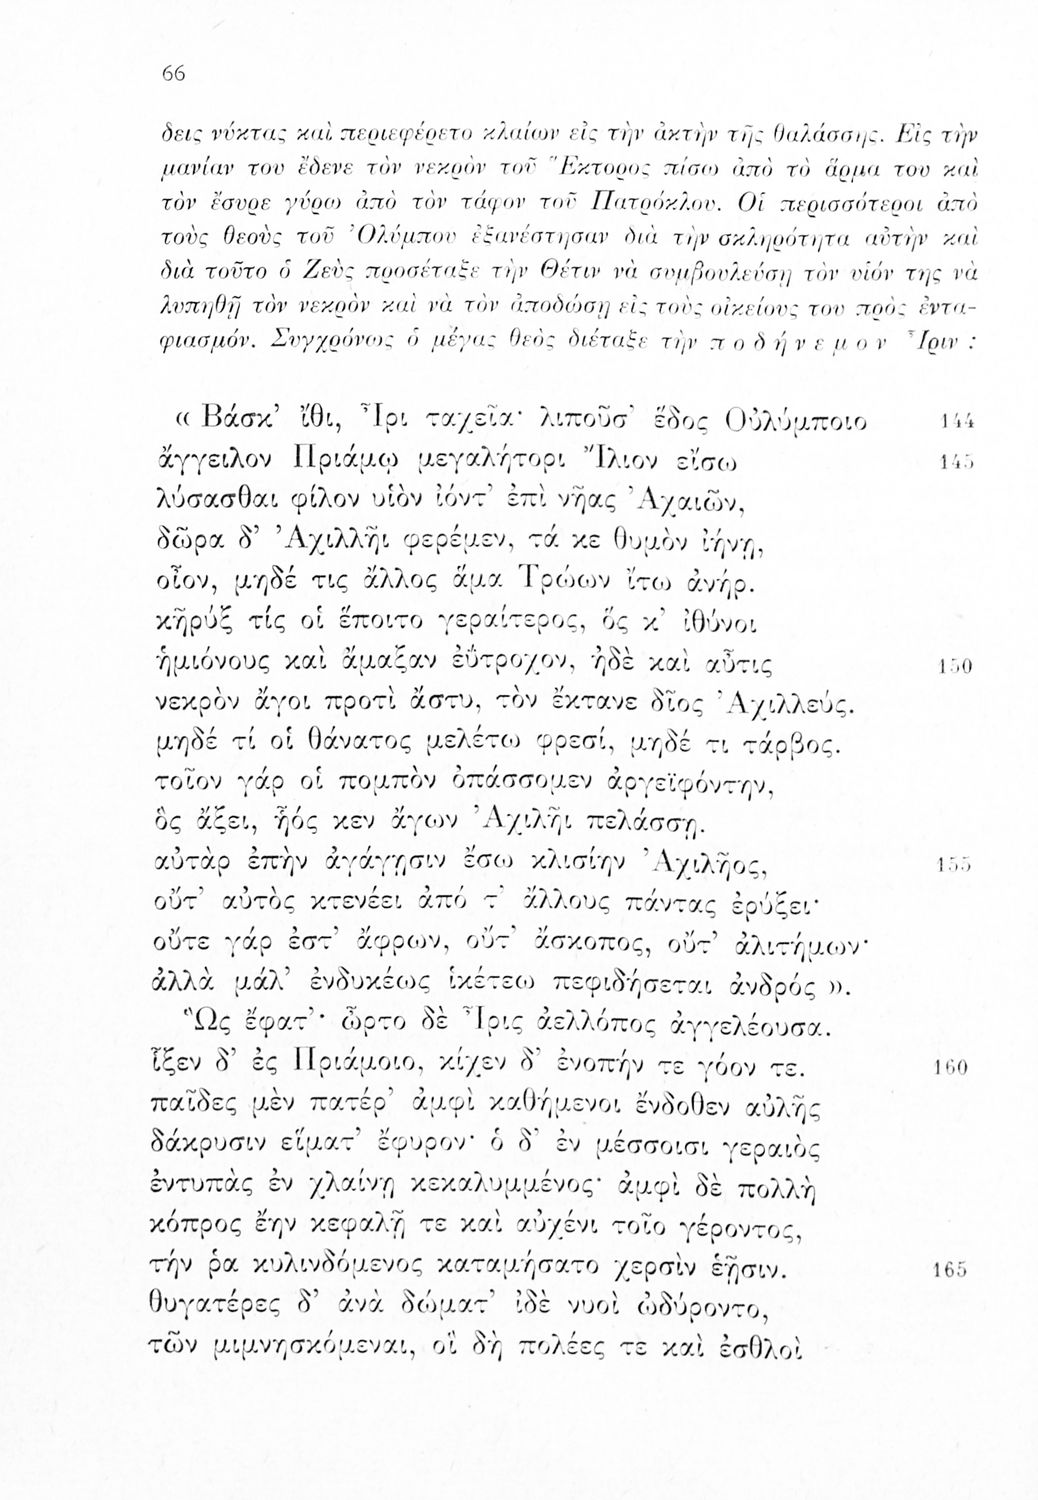 66
δεις νύκτας καὶ περιεφέρετο κλαίων εἰς τὴν ἀκτὴν τῆς θαλάσσης. Εἰς τὴν
μανίαν του ἔδενε τὸν νεκρὸν τοῦ Ἕκτορος πίσω ἀπὸ τὸ ἅρμα του καὶ
τὸν ἔσυρε γύρω ἀπὸ τὸν τάφον τοῦ Πατρόκλου. Οἱ περισσότεροι ἀπὸ
τοὺς θεοὺς τοῦ Ὀλύμπου ἐξανέστησαν διὰ τὴν σκληρότητα αὐτὴν καὶ
διὰ τοῦτο ὁ Ζεὺς προσέταξε τὴν Θέτιν νὰ συμβουλεύσῃ τὸν υἱόν της νὰ
λυπηθῇ τὸν νεκρὸν καὶ νὰ τὸν ἀποδώσῃ εἰς τοὺς οἰκείους του πρὸς ἐντα-
φιασμόν. Συγχρόνως ὁ μέγας θεὸς διέταξε τὴν π ο δ ή ν ε μ ο ν Ἶριν :
« Βάσκ’ ἴθι, Ἶρι ταχεῖα· λιποῦσ’ ἕδος Οὐλύμποιο 144
ἄγγειλον Πριάμῳ μεγαλήτορι Ἴλιον εἴσω 145
λύσασθαι φίλον υἱὸν ἰόντ’ ἐπὶ νῆας Ἀχαιῶν,
δῶρα δ’ Ἀχιλλῆι φερέμεν, τά κε θυμὸν ἰήνῃ,
οἶον, μηδέ τις ἄλλος ἅμα Τρώων ἴτω ἀνήρ.
κῆρύξ τίς οἱ ἕποιτο γεραίτερος, ὅς κ’ ἰθύνοι
ἡμιόνους καὶ ἅμαξαν ἐΰτροχον, ἠδὲ καὶ αὖτις 150
νεκρὸν ἄγοι προτὶ ἄστυ, τὸν ἔκτανε δῖος Ἀχιλλεύς.
μηδέ τί οἱ θάνατος μελέτω φρεσί, μηδέ τι τάρβος.
τοῖον γάρ οἱ πομπὸν ὀπάσσομεν ἀργεϊφόντην,
ὃς ἄξει, ἧός κεν ἄγων Ἀχιλῆι πελάσσῃ.
αὐτὰρ ἐπὴν ἀγάγῃσιν ἔσω κλισίην Ἀχιλῆος, 155
οὔτ’ αὐτὸς κτενέει ἀπό τ’ ἄλλους πάντας ἐρύξει·
οὔτε γάρ ἐστ’ ἄφρων, οὔτ’ ἄσκοπος, οὔτ’ ἀλιτήμων·
ἀλλὰ μάλ’ ἐνδυκέως ἱκέτεω πεφιδήσεται ἀνδρός ».
Ὣς ἔφατ’· ὦρτο δὲ Ἶρις ἀελλόπος ἀγγελέουσα.
ἷξεν δ’ ἐς Πριάμοιο, κίχεν δ’ ἐνοπήν τε γόον τε. 160
παῖδες μὲν πατέρ’ ἀμφὶ καθήμενοι ἔνδοθεν αὐλῆς
δάκρυσιν εἵματ’ ἔφυρον· ὁ δ’ ἐν μέσσοισι γεραιὸς
ἐντυπὰς ἐν χλαίνῃ κεκαλυμμένος· ἀμφὶ δὲ πολλὴ
κόπρος ἔην κεφαλῇ τε καὶ αὐχένι τοῖο γέροντος,
τήν ῥα κυλινδόμενος καταμήσατο χερσὶν ἑῇσιν. 165
θυγατέρες δ’ ἀνὰ δώματ’ ἰδὲ νυοὶ ὠδύροντο,
τῶν μιμνησκόμεναι, οἳ δὴ πολέες τε καὶ ἐσθλοὶ